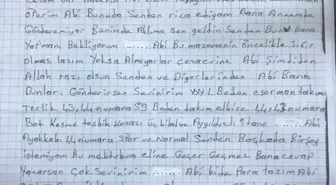 öperim Abi Bunuda Senden rica ediyom Bana Annemde
Gönderemiyor Benimde Aklıma Sen geldin Senden Bunu Bana
Yatman Bekliyorum ...... Abi Bu malzemenin öncelikle Sıfır
olması lazım Yoksa Almıyorlar cezaevine Abi Şimdiden
Allah razı olsun Senden ve Diğerlerinden Abi Bana
Bunları Gönderirsen Sevinirim XXL Beden eşorman takımı
Terlik 43,44 numara 59 Beden takım elbise 44,43 numara
Bot Kesme tesbih Kafası üç hilal ve Ayyıldızlı 1 tane .... Abi
Ayakkabı 44 numara Spor ve Normal Senden Başkada Birşey
istemiyom Bu maktubum eline Geçer Geçmez Bana cevap
Yazarsan Çok Sevinirim Abi bide Para lazım Abi